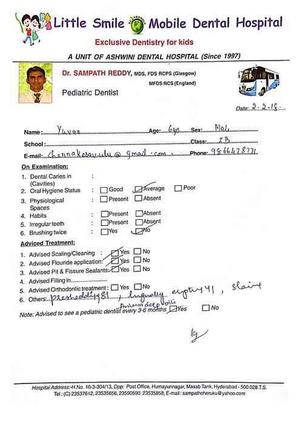 Little Smile Mobile Dental Hospital
Exclusive Dentistry for kids
A UNIT OF ASHWINI DENTAL HOSPITAL (Since 1997)
Dr. SAMPATH REDDY, MDS, FDS RCPS (Glasgow)
MFDS RCS (England)
Pediatric Dentist
Date: 2-2-18
Name: Age: 6yrs Sex: Male
School: Class: IB
E-mail: @gmail.com Phone:
On Examination:
1. Dental Caries in :
(Cavities)
2. Oral Hygiene Status : Good Average Poor
3. Physiological : Present Absent
Spaces
4. Habits : Present Absent
5. Irregular teeth : Present Absent
6. Brushing twice : Yes No
Advised Treatment:
1. Advised Scaling/Cleaning : Yes No
2. Advised Flouride application: Yes No
3. Advised Pit & Fissure Sealants: Yes No
4. Advised Filling in
5. Advised Orthodontic treatment : Yes No
6. Others:
Note: Advised to see a pediatric dentist every 3-6 months Yes No
Hospital Address: H.No. 16-3-304/13, Opp: Post Office, Humayunnagar, Masab Tank, Hyderabad - 500 028 T.S.
Tel: (C) 23537612, 23535656, 23590690 23535858, E-mail: sampathcheruku@yahoo.com